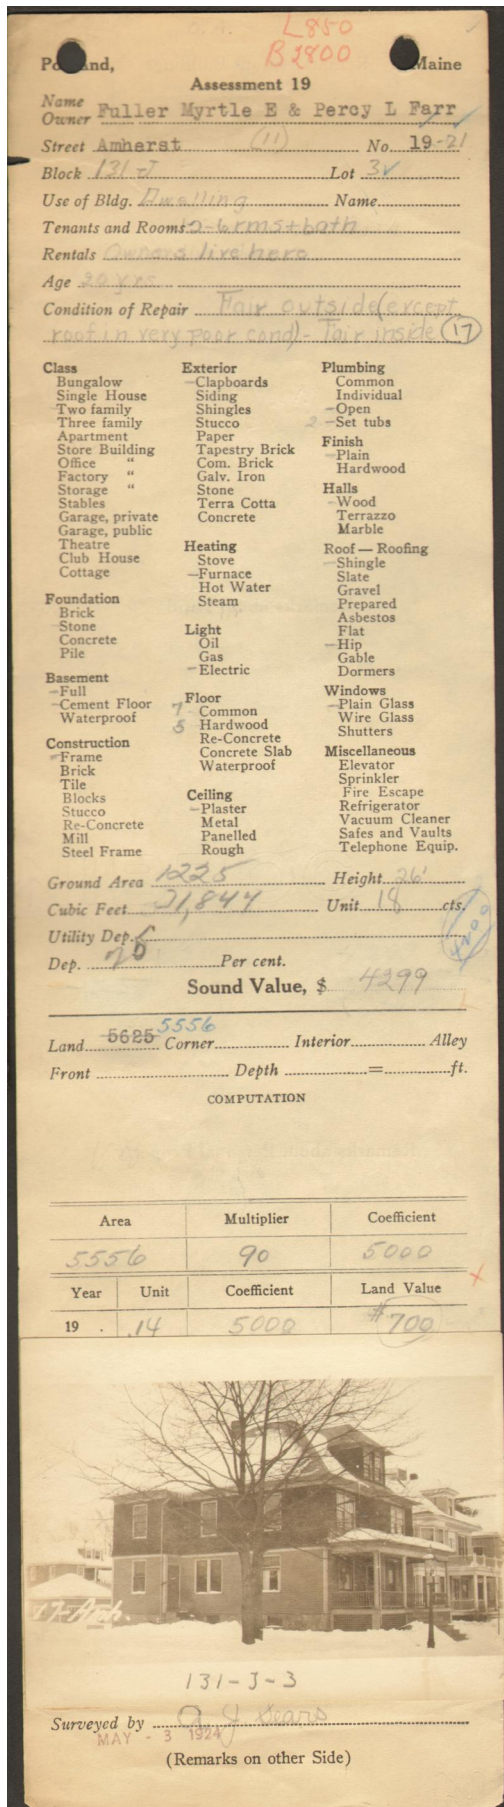 L850
B2800
Portland, Maine
Assessment 19
Name
Owner Fuller Myrtle E & Percy L Farr
Street Amherst (11) No. 19-21
Block 131 J Lot 3
Use of Bldg. Dwelling Name
Tenants and Rooms 2-6 rms + bath
Rentals Owners live here
Age 20 yrs
Condition of Repair Fair outside (except
roof in very poor cond) - Fair inside (17)
Class
Bungalow
Single House
-Two family
Three family
Apartment
Store Building
Office "
Factory "
Storage "
Stables
Garage, private
Garage, public
Theatre
Club House
Cottage
Foundation
Brick
-Stone
Concrete
Pile
Basement
-Full
-Cement Floor
Waterproof
Construction
-Frame
Brick
Tile
Blocks
Stucco
Re-Concrete
Mill
Steel Frame
Exterior
-Clapboards
Siding
Shingles
Stucco
Paper
Tapestry Brick
Com. Brick
Galv. Iron
Stone
Terra Cotta
Concrete
Heating
Stove
-Furnace
Hot Water
Steam
Light
Oil
Gas
-Electric
Floor
7 Common
5 Hardwood
Re-Concrete
Concrete Slab
Waterproof
Ceiling
-Plaster
Metal
Panelled
Rough
Plumbing
Common
Individual
-Open
2 -Set tubs
Finish
-Plain
Hardwood
Halls
-Wood
Terrazzo
Marble
Roof — Roofing
-Shingle
Slate
Gravel
Prepared
Asbestos
Flat
-Hip
Gable
Dormers
Windows
-Plain Glass
Wire Glass
Shutters
Miscellaneous
Elevator
Sprinkler
Fire Escape
Refrigerator
Vacuum Cleaner
Safes and Vaults
Telephone Equip.
Ground Area 1225 Height 26'
Cubic Feet 31,844 Unit 18 cts.
Utility Dep.
Dep. Per cent.
Sound Value, $ 4299
Land 5625 5556 Corner Interior Alley
Front Depth = ft.
COMPUTATION
Area Multiplier Coefficient
5556 90 5000
Year Unit Coefficient Land Value
19 . .14 5000 $700
17-Amh.
131-J-3
Surveyed by J Sears
MAY - 3 1924
(Remarks on other Side)